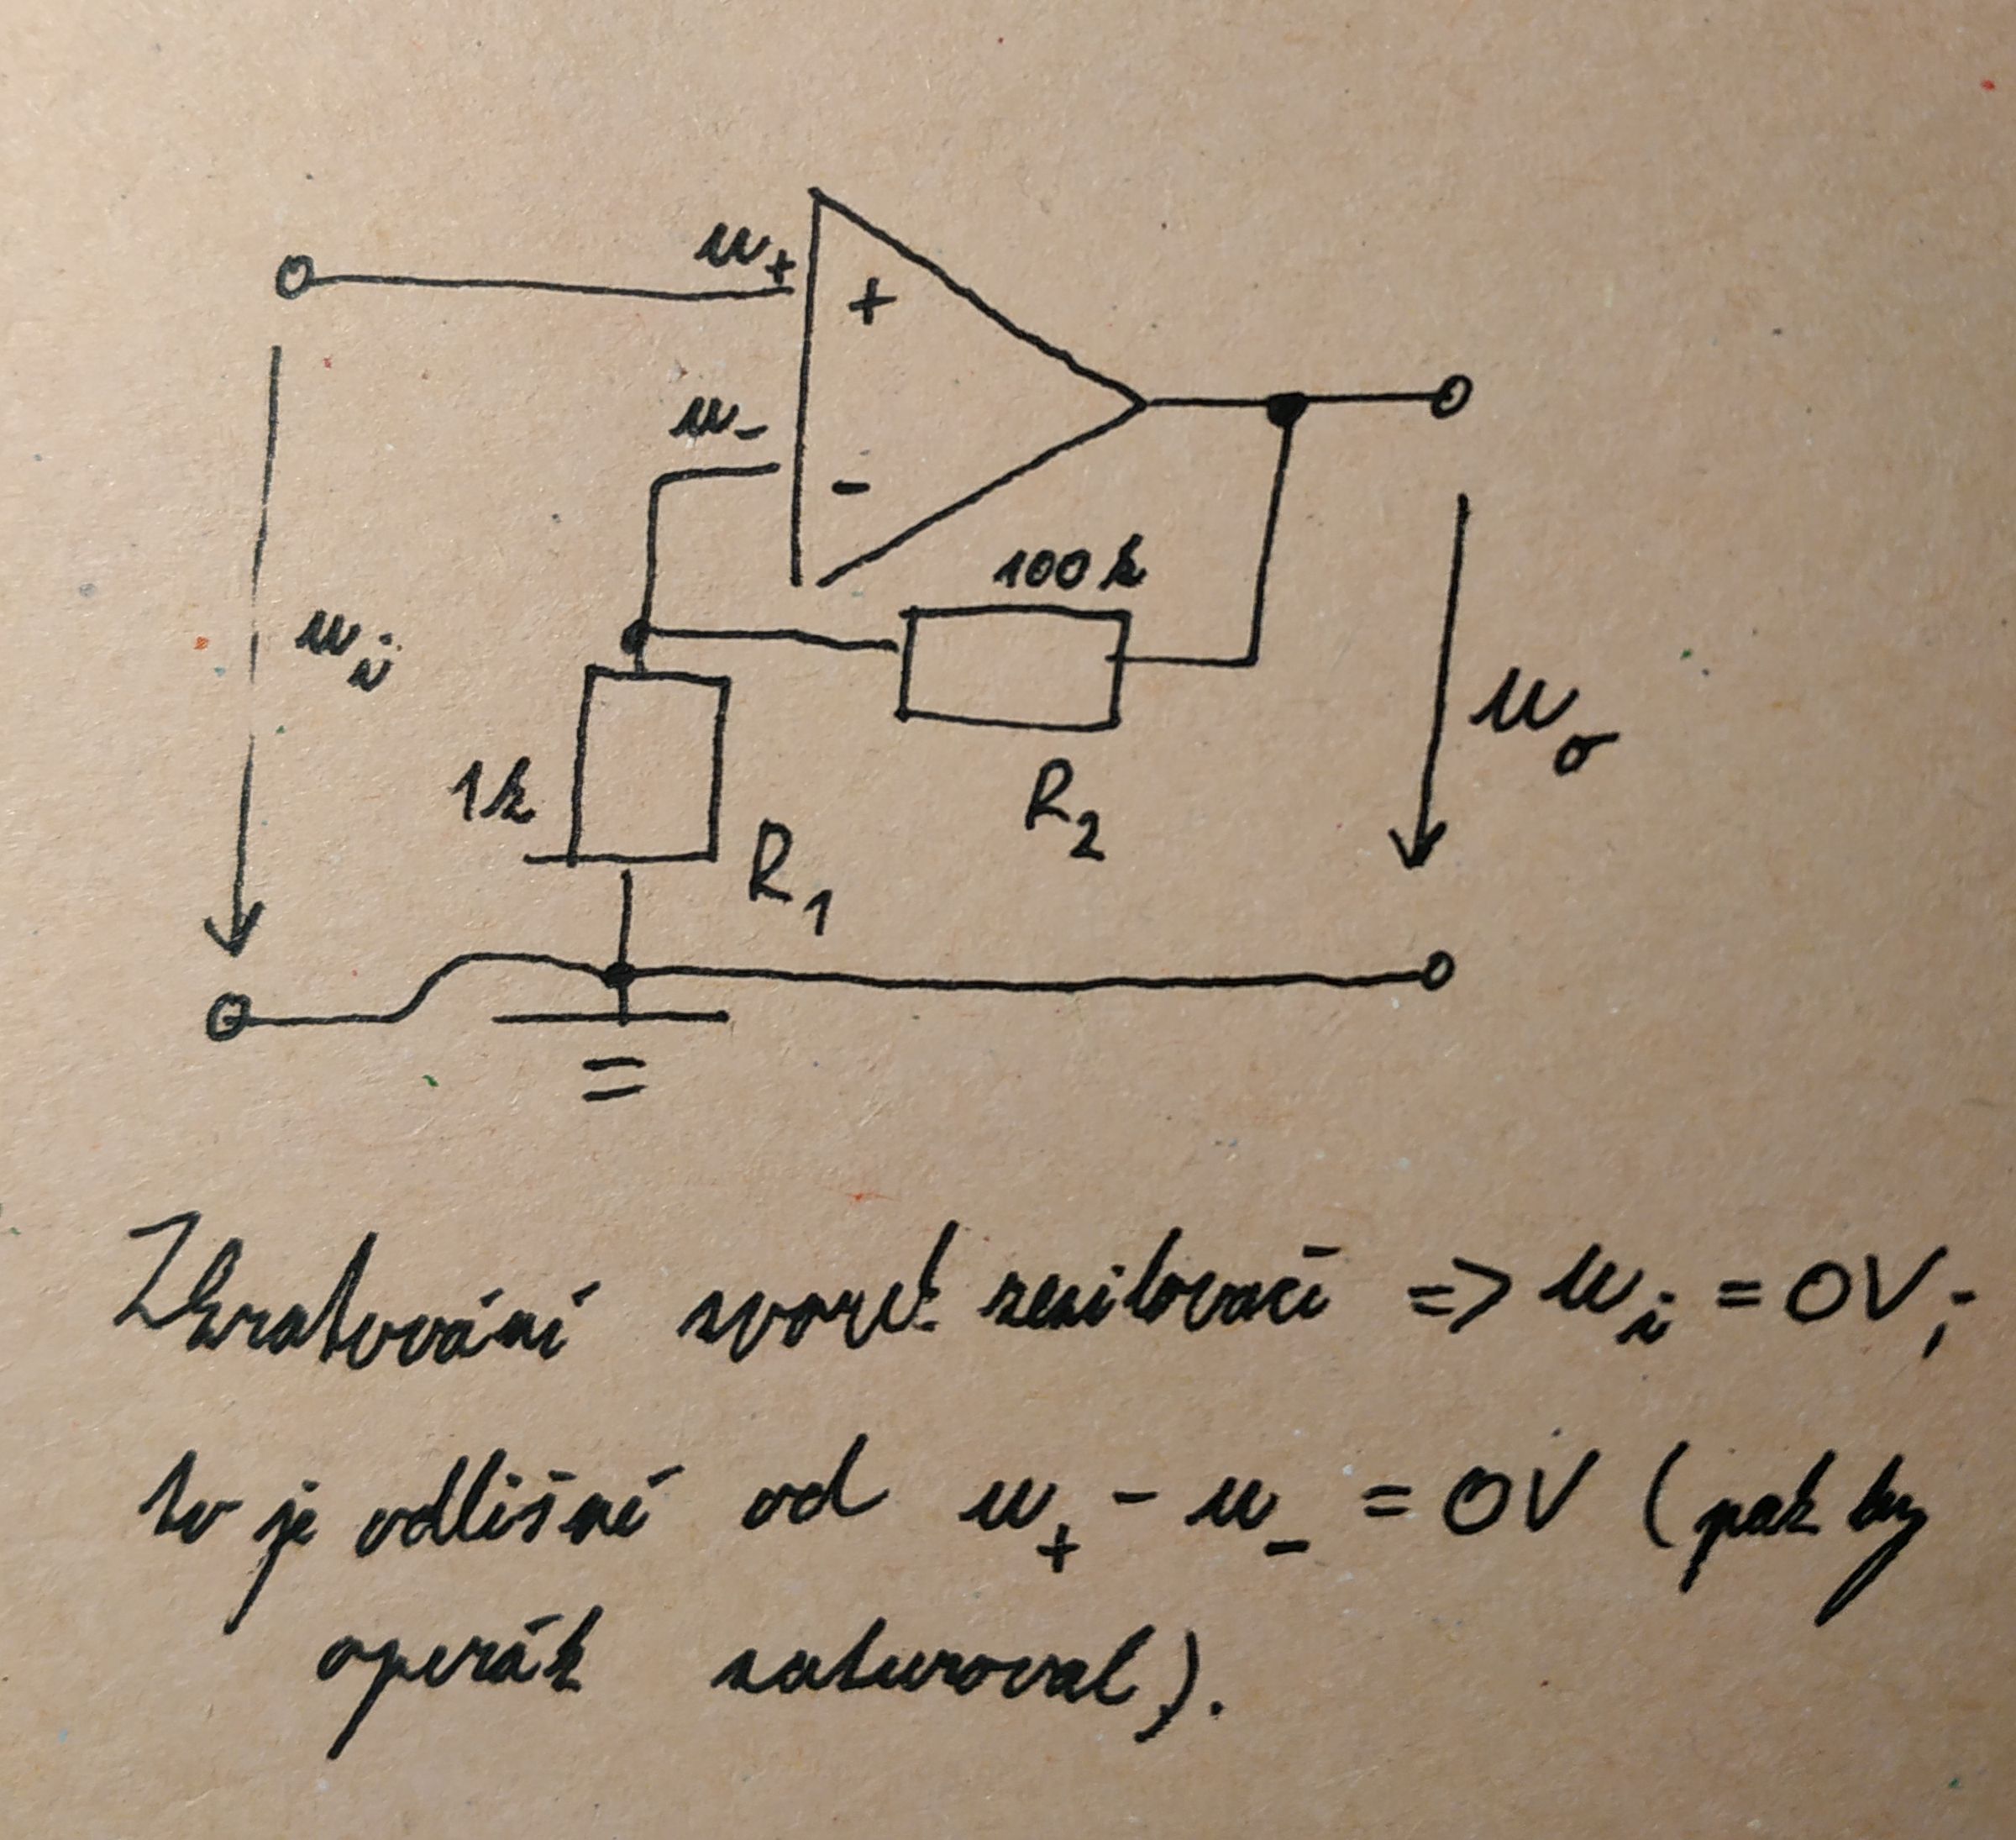 u+
+
u-
-
100k
ui
uo
1k
R2
R1
Zkratování svorek zesilovače => ui = 0V;
to je odlišné od u+ - u- = 0V (pak by
operák saturoval).